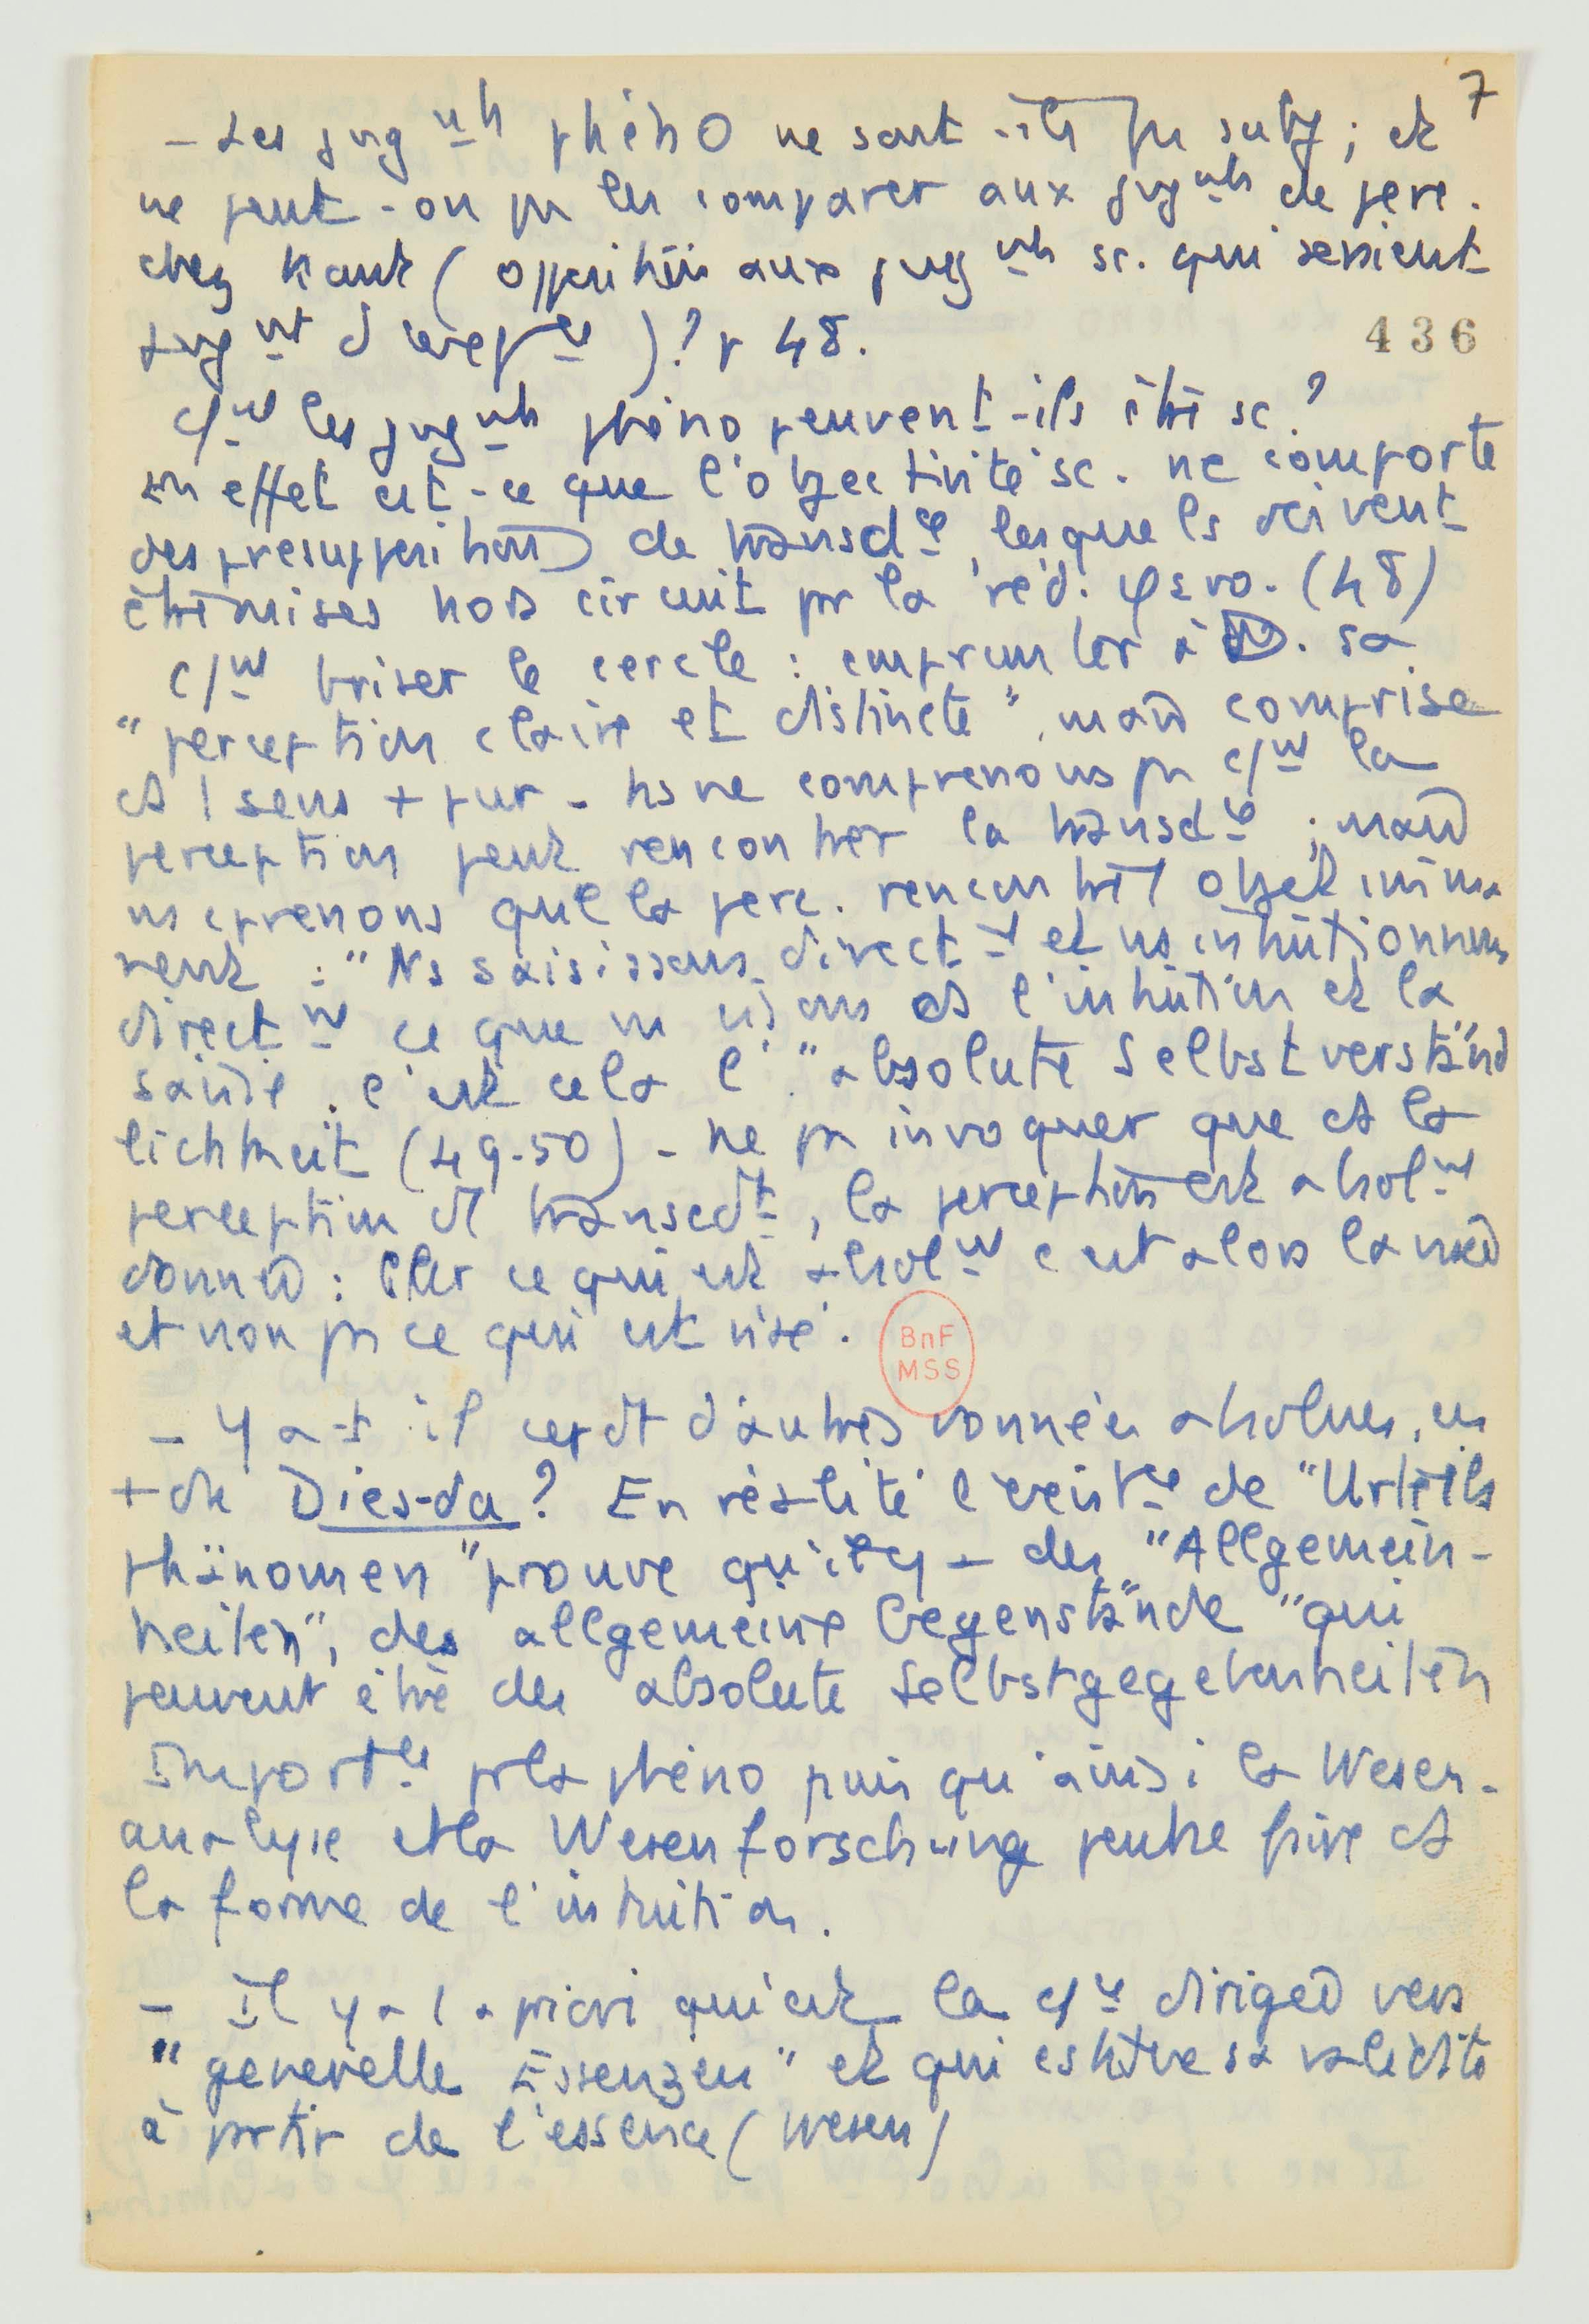 7
- Les jugmts phéno ne sont-ils pas subj ; et
ne peut-on pas les comparer aux jugmts de perc.
chez Kant ( opposition aux jugmts sc. qui seraient
) ? p 48.
436
c/mt les jugmts phéno peuvent-ils être sc ?
En effet est-ce que l'objectivité sc. ne comporte
des présuppositions de transdce, lesquels doivent
être mises hors circuit par la réd. (48)
c/mt briser le cercle : emprunter à D. sa
"perception claire et distincte", mais comprise
ds 1 sens + pur - ns ne comprenons pas c/mt la
perception peut rencontrer la transdce ; mais
ns cprenons que la perc. rencontre 1 objet imma
nent : "Ns saisissons directmt et ns intuitionnons
directmt ce que ns visons ds l'intuition et la
saisie. c'est cela l'"absolute Selbstverständ
lichkeit (49-50) - ne pas invoquer que ds la
perception dt transcdt, la perception est absolmt
donnée : car ce qui est absolmt c'est alors la visée
et non pas ce qui est visé.
BnF
MSS
- Y a-t-il cepdt d'autres données absolues, en
+ du Dies-da ? En réalité l'existce de "Urteils
phänomen" prouve qu'il y a des "Allgemein-
heiten", des allgemeine Gegenstände "qui
peuvent être des absolute Selbstgegebenheiten
Importce pr la phéno puisqu'ainsi la Wesen-
analyse et la Wesenforschung peut se faire ds
la forme de l'intuition.
- Il y a 1 a priori qui est la dirigée vers
"generelle Essenzen" et qui est sa validité
à partir de l'essence (Wesen)